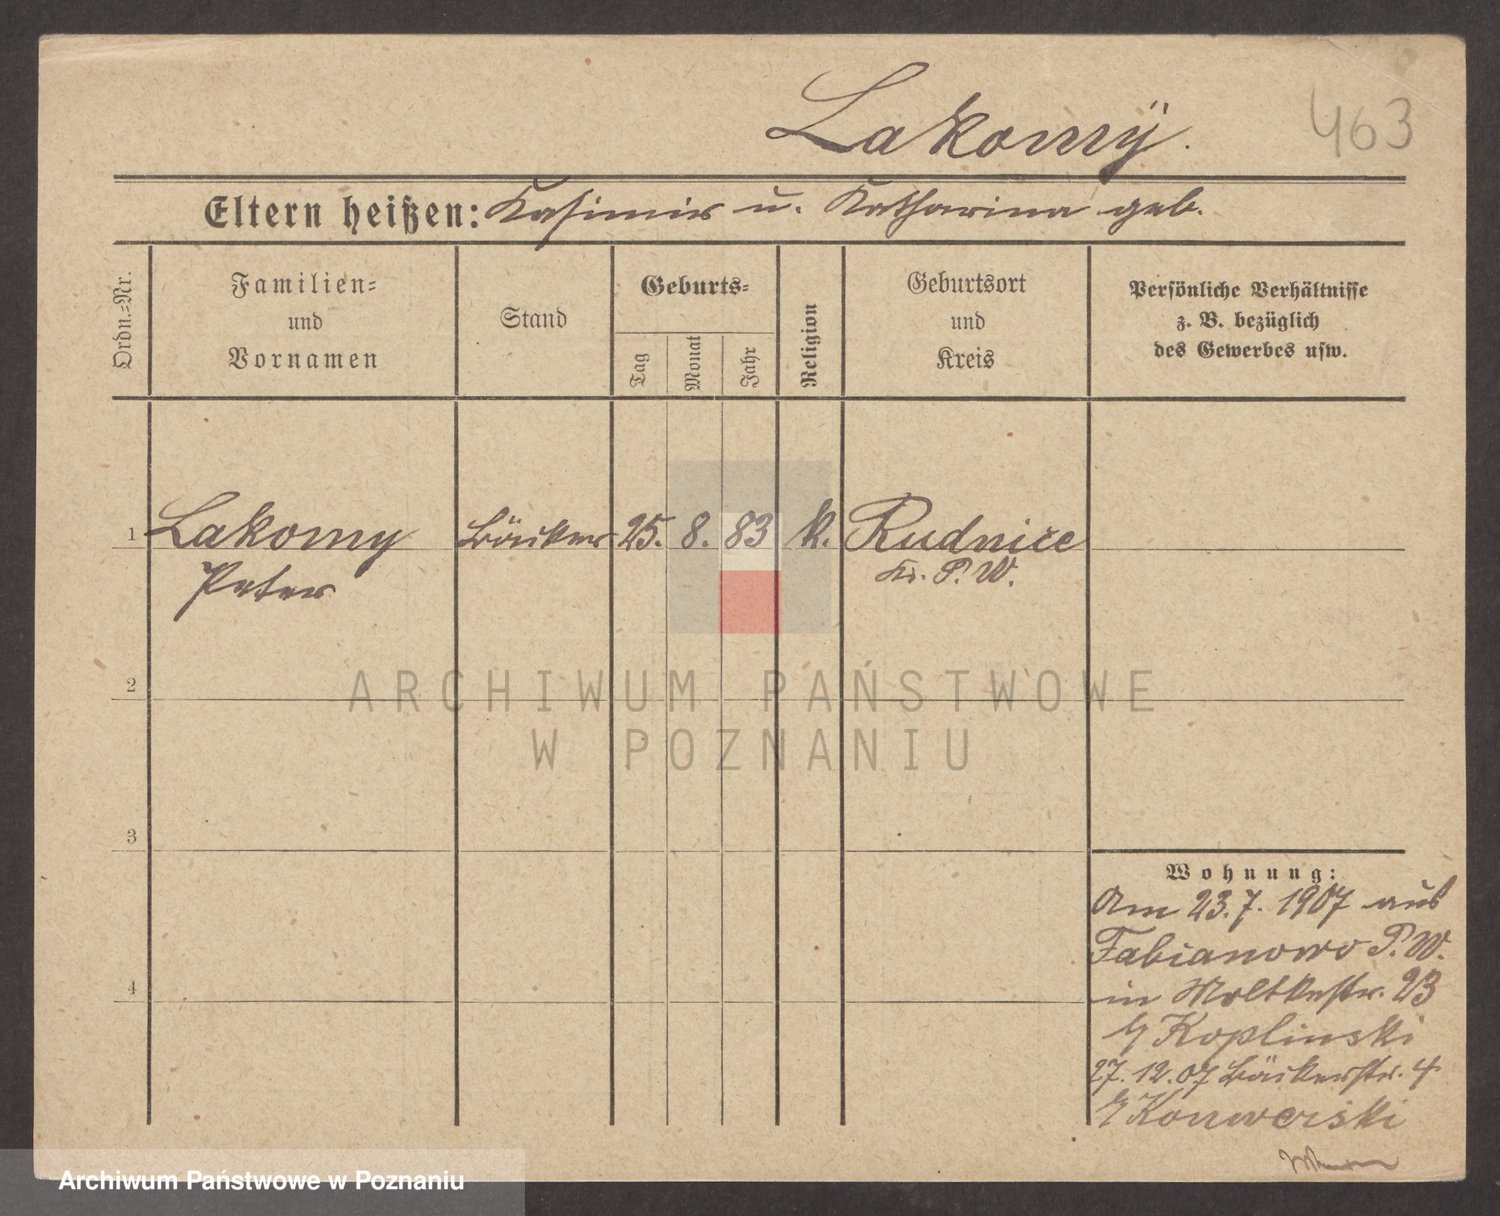 Lakomÿ.
463
Eltern heißen: Kasimir u. Katharina geb.
Ordn.-Nr.
Familien-
und
Vornamen
Stand
Geburts-
Tag
Monat
Jahr
Religion
Geburtsort
und
Kreis
Persönliche Verhältnisse
z. B. bezüglich
des Gewerbes usw.
1 Lakomy Bäcker 25. 8. 83 k. Rudnice
Peter Kr. P. W.
ARCHIWUM PAŃSTWOWE
W POZNANIU
2
3
4
Wohnung:
Am 23.7. 1907 aus
Fabianowo P. W.
in Moltkestr. 23
Koplinski
27. 12. 07 Bäckerstr. 4
Konwerski
Archiwum Państwowe w Poznaniu